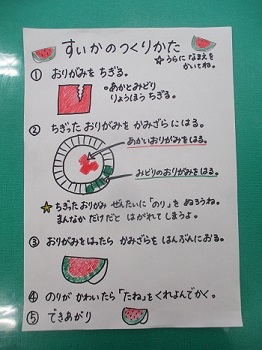 すいかのつくりかた
☆うらに なまえを
かいてね。
① おりがみを ちぎる。
◦あかと みどり
りょうほう ちぎる。
② ちぎった おりがみを かみざらに はる。
あかいおりがみをはる。
みどりのおりがみをはる。
☆ちぎったおりがみ ぜんたいに「のり」を ぬろうね。
まんなか だけだと はがれてしまうよ。
③ おりがみをはったら かみざらを はんぶんにおる。
④ のりが かわいたら「たね」をくれよんでかく。
⑤ できあがり